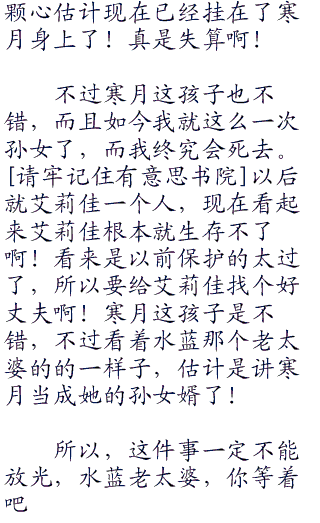 颗心估计现在已经挂在了寒
月身上了！真是失算啊！
不过寒月这孩子也不
错，而且如今我就这么一次
孙女了，而我终究会死去。
[请牢记住有意思书院]以后
就艾莉佳一个人，现在看起
来艾莉佳根本就生存不了
啊！看来是以前保护的太过
了，所以要给艾莉佳找个好
丈夫啊！寒月这孩子是不
错，不过看着水蓝那个老太
婆的的一样子，估计是讲寒
月当成她的孙女婿了！
所以，这件事一定不能
放光，水蓝老太婆，你等着
吧